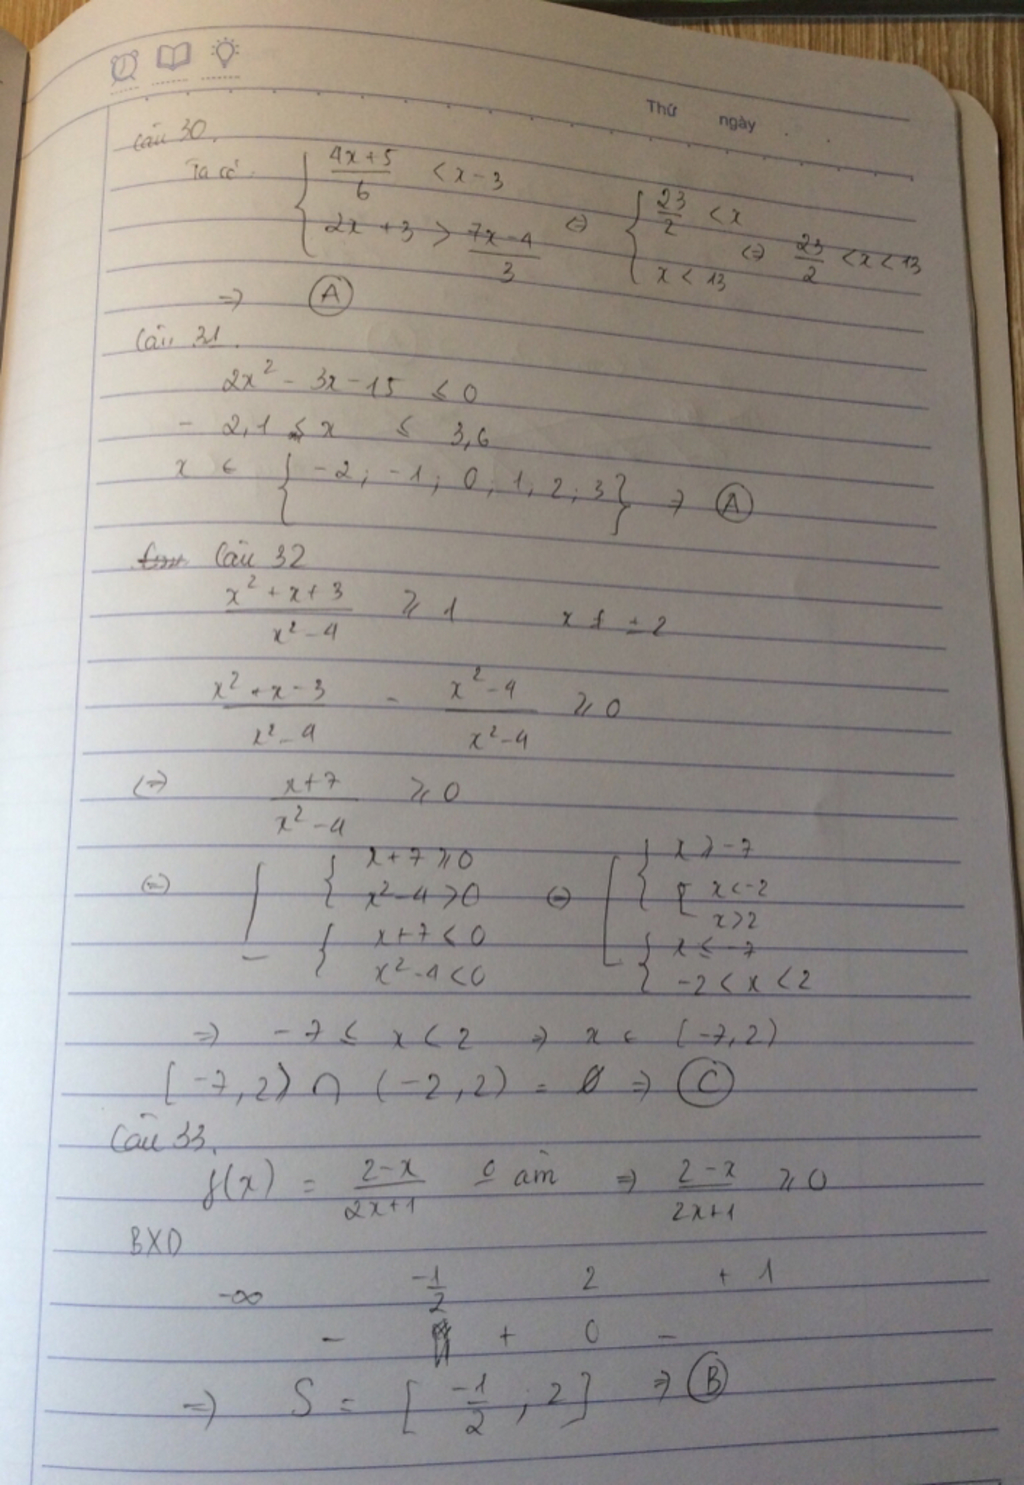 Thứ ngày
Câu 30.
Ta có: { (4x+5)/6 < x-3 ; 2x+3 > (7x-4)/3 <=> { 23/2 < x ; x < 13 <=> 23/2 < x < 13
=> A
Câu 31.
2x² - 3x - 15 ≤ 0
- 2,1 ≤ x ≤ 3,6
x ∈ { -2; -1; 0; 1; 2; 3 } => A
Câu 32
(x² + x + 3)/(x² - 4) ≥ 1 x ≠ ± 2
(x² + x - 3)/(x² - 4) - (x² - 4)/(x² - 4) ≥ 0
<=> (x+7)/(x² - 4) ≥ 0
<=> [ { x+7 ≥ 0 ; x² - 4 > 0 ; { x+7 < 0 ; x² - 4 < 0 <=> [ { x ≥ -7 ; [ x < -2 ; x > 2 ; { x ≤ -7 ; -2 < x < 2
=> -7 ≤ x < 2 => x ∈ [-7, 2)
[-7, 2) ∩ (-2, 2) = ∅ => C
Câu 33.
f(x) = (2-x)/(2x+1) âm => (2-x)/(2x+1) ≥ 0
BXD
-∞ -1/2 2 + 1
- + 0 -
=> S = [ -1/2 ; 2 ] => B